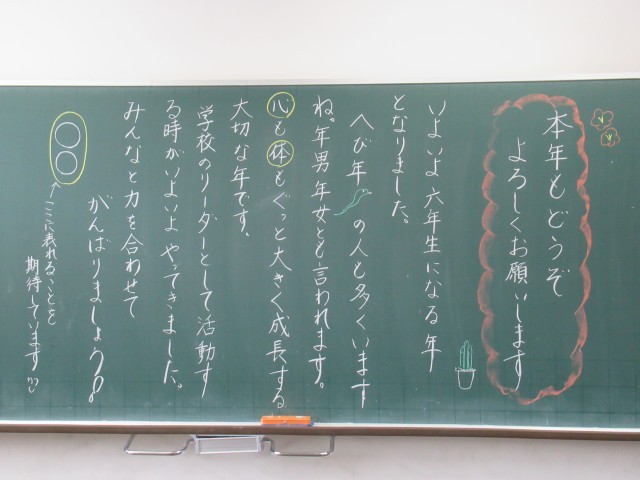 本年もどうぞ
よろしくお願いします
いよいよ六年生になる年
となりました。
へび年の人も多くいます
ね。年男年女とも言われます。
心も体もぐっと大きく成長する
大切な年です。
学校のリーダーとして活動す
る時がいよいよやってきました。
みんなと力を合わせて
がんばりましょう。
○○
ここに表れることを
期待しています